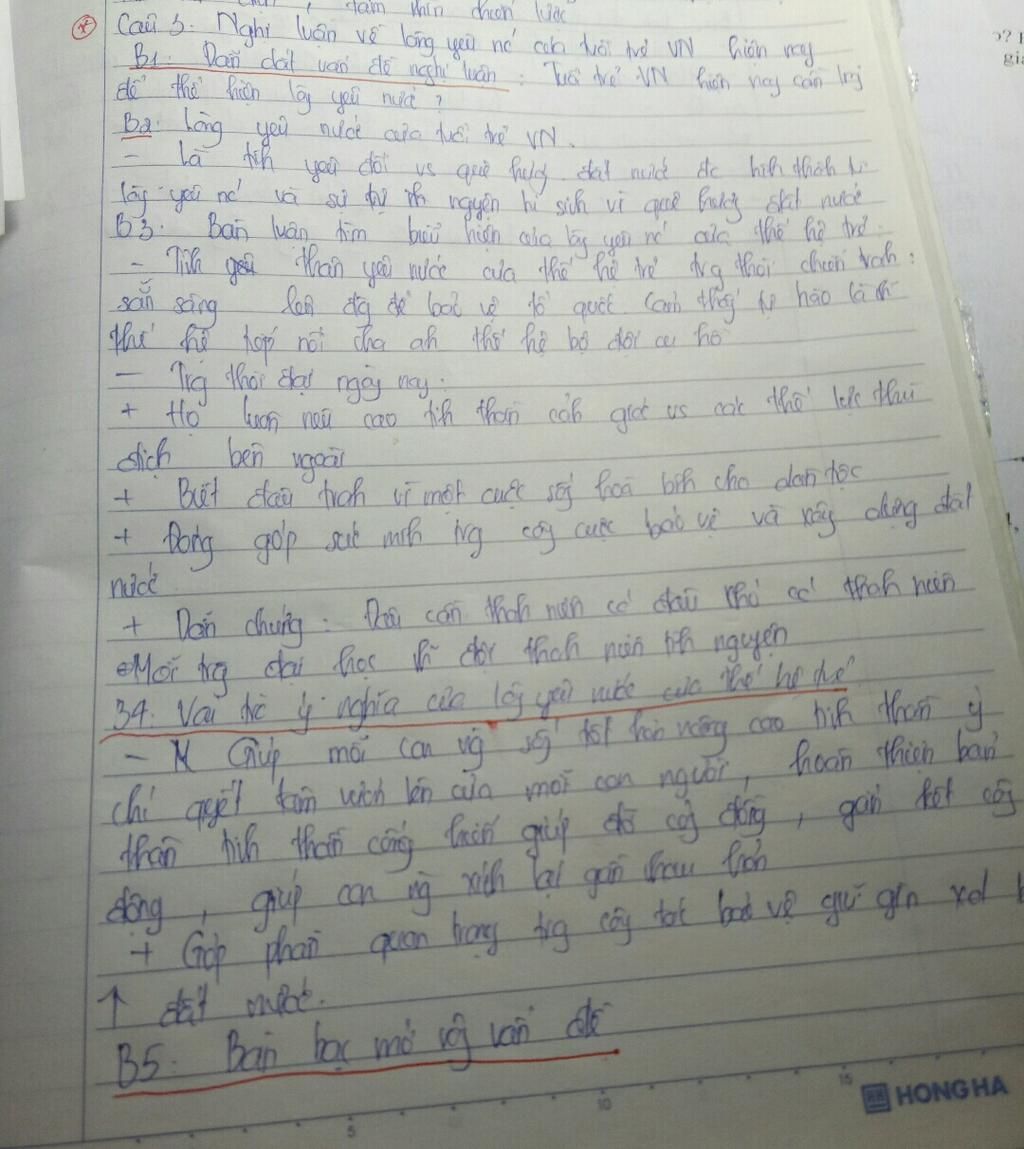 tâm nhìn chọn lức
Câu 3. Nghị luận về lòng yêu nc của tuổi trẻ VN hiện nay
B1. Dẫn dắt vấn đề nghị luận: Tuổi trẻ VN hiện nay cần làm j
để thể hiện lòg yêu nước?
B2: Lòng yêu nước của tuổi trẻ VN.
- Là tình yêu đối vs quê hươg đất nước đc hình thành từ
lòg yêu nc và sự tự nguyện hi sinh vì quê hươg đất nước
B3: Bàn luận tìm biểu hiện của lòg yêu nc của thế hệ trẻ.
- Tinh thần yêu nước của thế hệ trẻ trg thời chiến tranh:
sẵn sàng lên đg để bảo vệ tổ quốc cảm thấy tự hào là
thế hệ tiếp nối cha ah thế hệ bộ đội cụ hồ
- Trg thời đại ngày nay:
+ Họ luôn nêu cao tinh thần cảh giác vs các thế lực thù
địch bên ngoài
+ Biết đấu tranh vì một cuộc sốg hoà bình cho dân tộc
+ Đóng góp sức mình trg côg cuộc bảo vệ và xây dựng đất
nước
+ Dẫn chứng: Đâu cần thah niên có đâu khó có thah niên
Mỗi trg đại học đội thah niên tình nguyện
B4. Vai trò ý nghĩa của lòg yêu nước của thế hệ trẻ
- Giúp mỗi con ng sốg tốt hơn nâng cao tinh thần ý
chí quyết tâm vươn lên của mỗi con người, hoàn thiện bản
thân tinh thần cống hiến giúp đỡ cộg đồng, gắn kết cộg
đồng, giúp con ng xích lại gần nhau hơn
+ Góp phần quan trọng trg côg tác bảo vệ giữ gìn
↑ đất nước.
B5: Bàn bạc mở rộg vấn đề
5 10 15
HONG HA